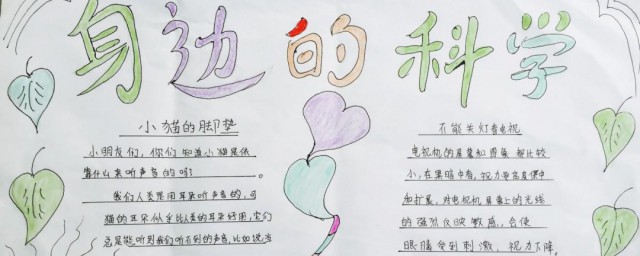 身边的科学
小猫的脚垫
小朋友们，你们知道小猫是依
靠什么来听声音的吗？
我们人类是用耳朵听声音的，可
猫的耳朵似乎比人类的耳朵好用，它们
总是能听到我们听不到的声音，比如说当
不能关灯看电视
电视机的屏幕和图像都比较
小，在黑暗中看，视力要高度集中
和扩展，对电视机屏幕上的光线
的强烈反映敏感，会使
眼睛受到刺激，视力下降。